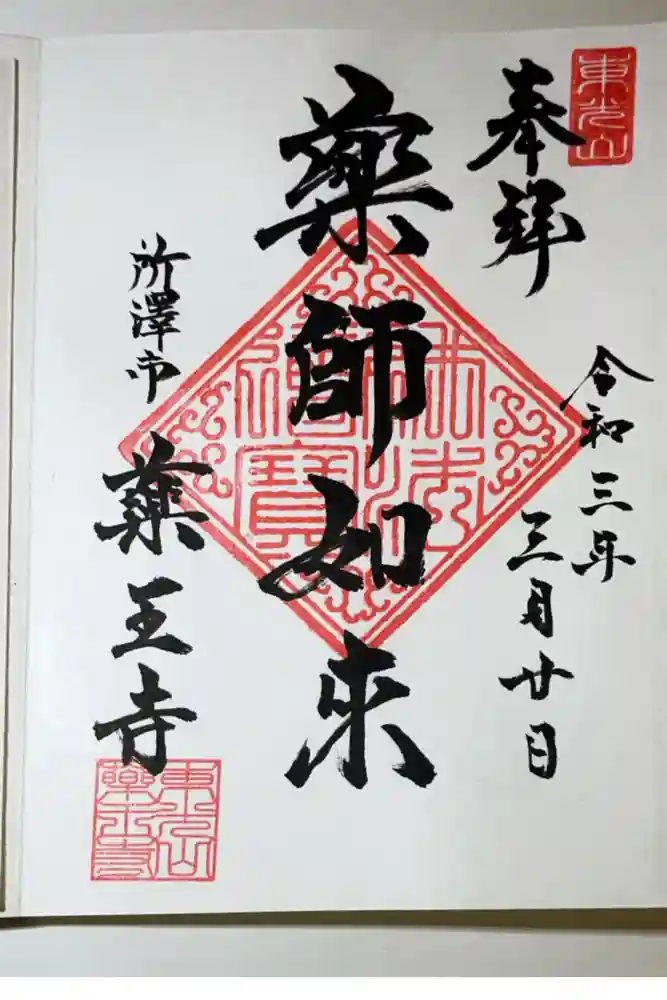 東光山
奉拝
令和三年
三月廿日
藥師如来
佛法僧寶
所澤市
藥王寺
東光山
藥王寺